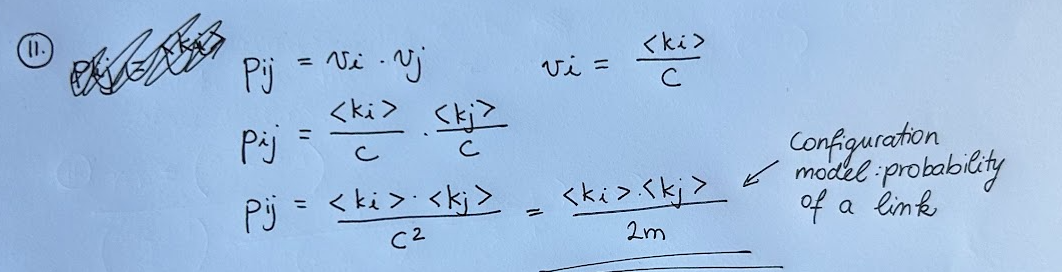 11.
pij = vi · vj    vi = <ki> / C
pij = <ki> / C · <kj> / C
pij = <ki> · <kj> / C² = <ki> · <kj> / 2m
Configuration
model: probability
of a link